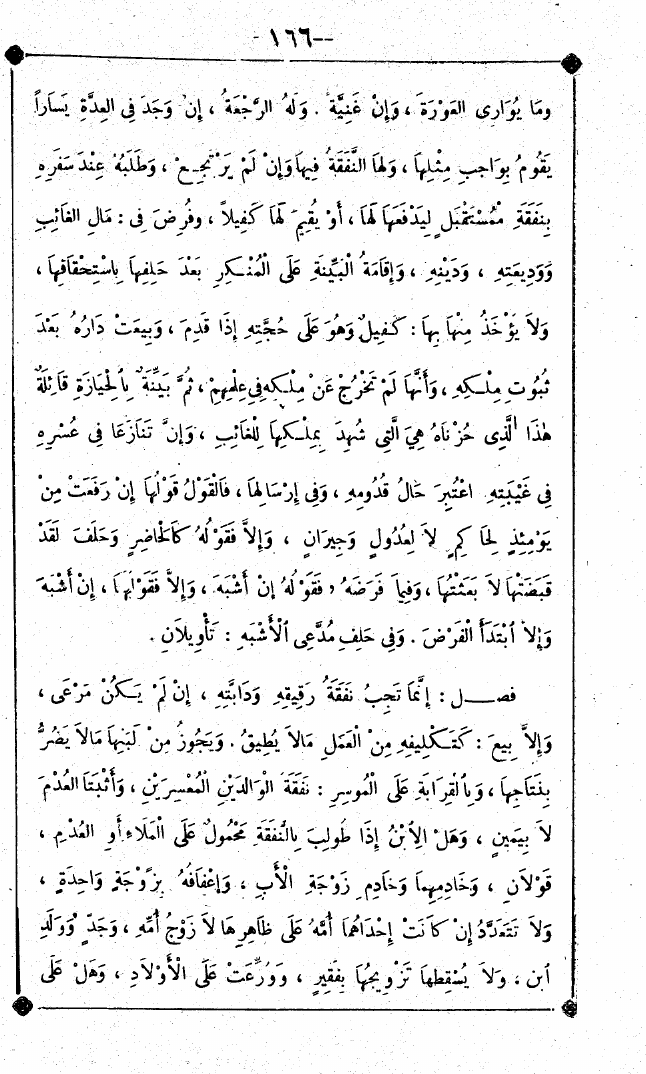 --١٦٦-
وَمَا يُوَارِى العَوْرَةَ ، وَإِنْ غَنِيَّةً . وَلَهُ الرَّجْعَةُ ، إِنْ وَجَدَ فِى العِدَّةِ يَسَاراً
يَقُومُ بِوَاجِبِ مِثْلِهَا ، وَلَهَا النَّفَقَةُ فِيهَا وَإِنْ لَمْ يَرْتَجِعْ ، وَطَلَبُهُ عِنْدَ سَفَرِهِ
بِنَفَقَةِ مُسْتَقْبَلٍ لِيَدْفَعَهَا لَهَا ، أَوْ يُقِيمَ لَهَا كَفِيلاً ، وَفُرِضَ فِى : مَالِ الغَائِبِ
وَوَدِيعَتِهِ ، وَدَيْنِهِ ، وَإِقَامَةُ الْبَيِّنَةِ عَلَى الْمُنْكِرِ بَعْدَ حَلِفِهَا بِاسْتِحْقَاقِهَا ،
وَلاَ يُؤْخَذُ مِنْهَا بِهَا : كَفِيلٌ وَهُوَ عَلَى حُجَّتِهِ إِذَا قَدِمَ ، وَبِيعَتْ دَارُهُ بَعْدَ
ثُبُوتِ مِلْكِهِ ، وَأَنَّهَا لَمْ تَخْرُجْ عَنْ مِلْكِهِ فِى عِلْمِهِمْ ، ثُمَّ بَيِّنَةٌ بِالْحِيَازَةِ قَائِلَةٌ
هٰذَا الَّذِى حُزْنَاهُ هِىَ الَّتِى شُهِدَ بِمِلْكِهَا لِلْغَائِبِ ، وَإِنْ تَنَازَعَا فِى عُسْرِهِ
فِى غَيْبَتِهِ اعْتُبِرَ حَالُ قُدُومِهِ ، وَفِى إِرْسَالِهَا ، فَالْقَوْلُ قَوْلُهَا إِنْ رَفَعَتْ مِنْ
يَوْمِئِذٍ لِحَاكِمٍ لاَ لِعُدُولٍ وَجِيرَانٍ ، وَإِلاَّ فَقَوْلُهُ كَالْحَاضِرِ وَحَلَفَ لَقَدْ
قَبَضَتْهَا لاَ بَعَثْتُهَا ، وَفِيمَا فَرَضَهُ ، فَقَوْلُهُ إِنْ أَشْبَهَ ، وَإِلاَّ فَقَوْلُهَا ، إِنْ أَشْبَهَ
وَإِلاَّ ابْتَدَأَ الْفَرْضَ . وَفِى حَلِفِ مُدَّعِى الْأَشْبَهِ : تَأْوِيلاَنِ .
فصــل : إِنَّمَا تَجِبُ نَفَقَةُ رَقِيقِهِ وَدَابَّتِهِ ، إِنْ لَمْ يَكُنْ مَرْعَى ،
وَإِلاَّ بِيعَ : كَتَكْلِيفِهِ مِنْ الْعَمَلِ مَالاَ يُطِيقُ . وَيَجُوزُ مِنْ لَبَنِهَا مَالاَ يَضُرُّ
بِنَتَاجِهَا ، وَبِالْقَرَابَةِ عَلَى الْمُوسِرِ : نَفَقَةُ الْوَالِدَيْنِ الْمُعْسِرَيْنِ ، وَأَثْبَتَا الْعُدْمَ
لاَ بِيَمِينٍ ، وَهَلْ الِابْنُ إِذَا طُولِبَ بِالنَّفَقَةِ مَحْمُولٌ عَلَى الْمَلَاءِ أَوِ الْعُدْمِ ،
قَوْلاَنِ ، وَخَادِمِهِمَا وَخَادِمِ زَوْجَةِ الْأَبِ ، وَإِعْفَافُهُ بِزَوْجَةٍ وَاحِدَةٍ ،
وَلاَ تَتَعَدَّدُ إِنْ كَانَتْ إِحْدَاهُمَا أُمَّهُ عَلَى ظَاهِرِهَا لاَ زَوْجُ أُمِّهِ ، وَجَدٍّ وَوَلَدِ
ابن ، وَلاَ يُسْقِطُهَا تَزْوِيجُهَا بِفَقِيرٍ ، وَوُزِّعَتْ عَلَى الْأَوْلاَدِ ، وَهَلْ عَلَى